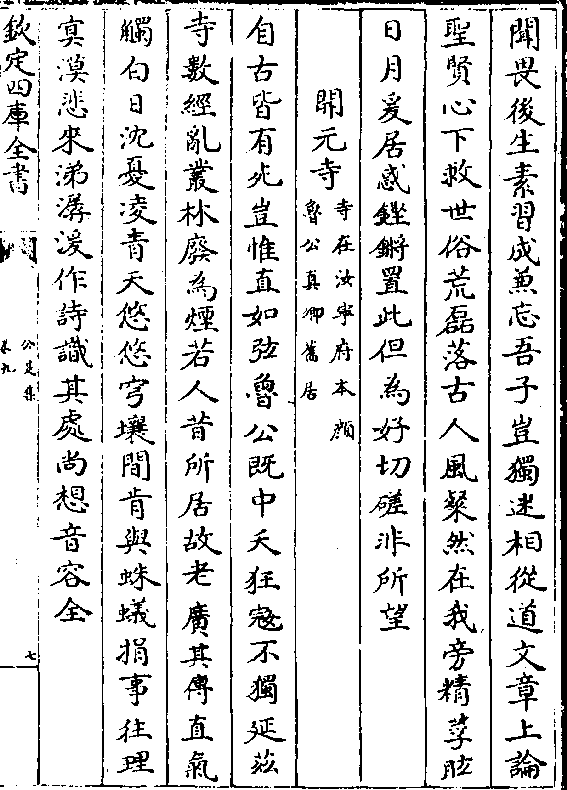 聞畏後生素習成兼忘吾子豈獨迷相從道文章上論
聖賢心下救世俗荒磊落古人風粲然在我旁精莩眩
日月爰居惑鏗鏘置此但為好切磋非所望
開元寺寺在汝寧府本顔
魯公真卿舊居
自古皆有死豈惟直如弦魯公既中夭狂寇不獨延兹
寺數經亂叢林廢為煙若人昔所居故老廣其傳直氣
觸白日沈憂凌青天悠悠穹壤間肯與蛛蟻捐事往理
寘漠悲來涕潺湲作詩識其處尚想音容全
欽定四庫全書
公是集
卷九
七